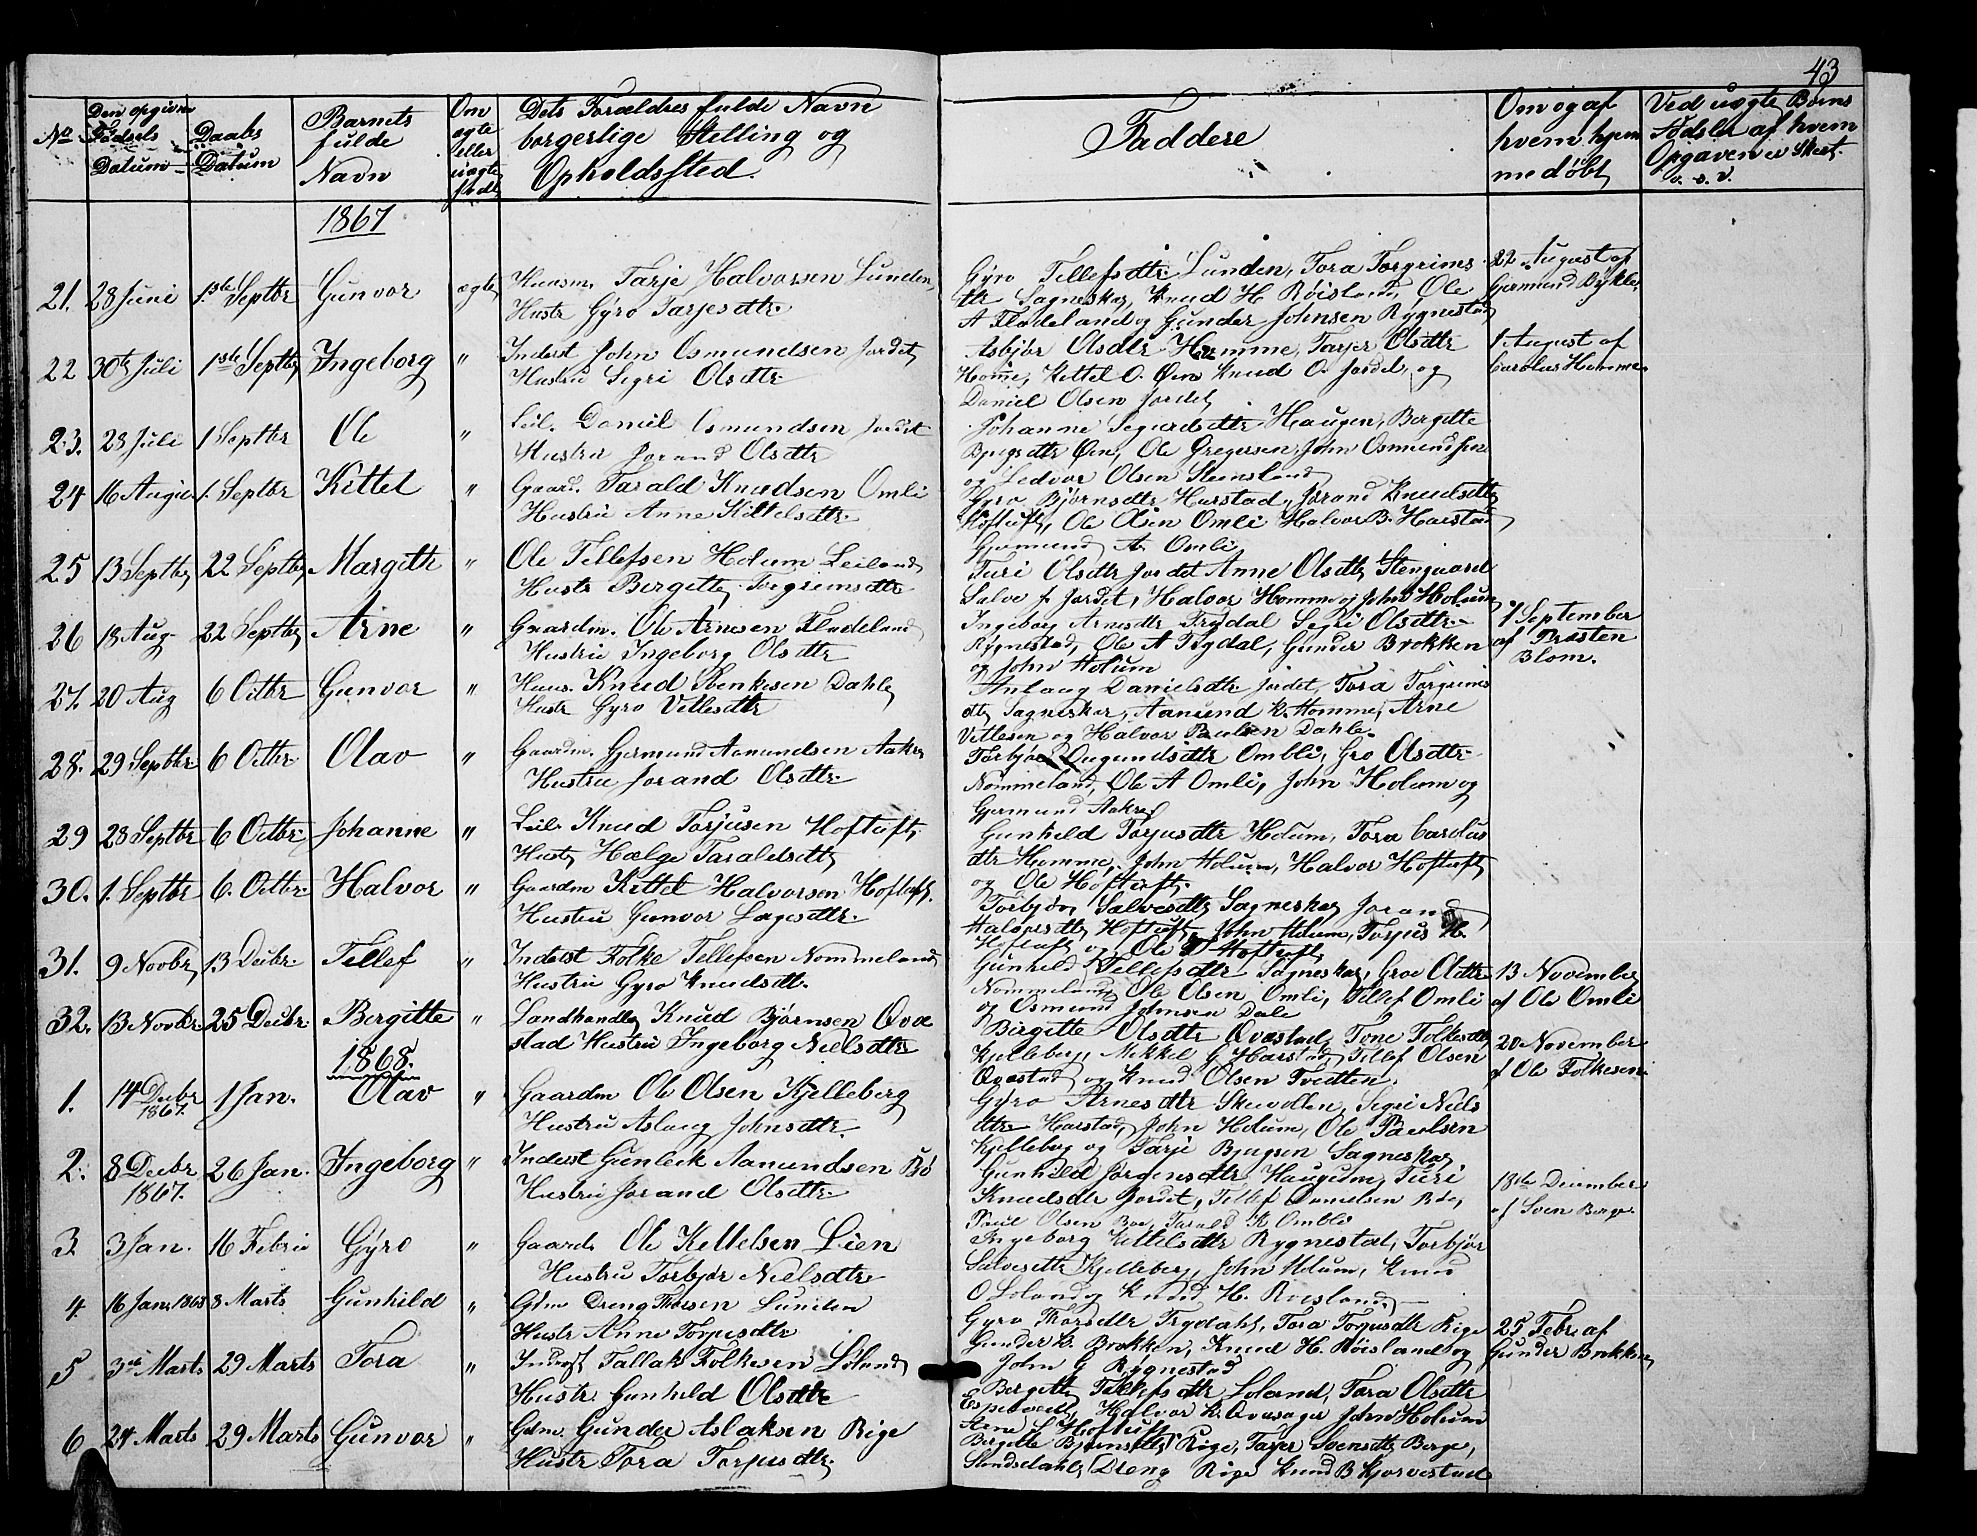 43
No
Den opgivne Fødsels Datum
Daabs Datum
Barnets fulde Navn
Om ægte eller uægte født
Dets Forældres fulde Navn borgerlige Stelling og Opholdssted.
Faddere
Om og af hvem hjemmedøbt
Ved uægte Børns Fødsler af hvem Opgaven er Skeet. o. s. v.
1867
21. 28 Juni 1ste Septbr Gunvor ægte Huusm. Tarje Halvorsen Lunden,
Hustr Gyro Tarjesdtr.
Gyro Tellefsdtr. Lunden, Tora Torgrims
dtr Sagneskar, Knud H. Røisland, Ole
A Fladeland og Gunder Johnsen Rygnestad
22 August af
Gjermund Bykle.
22 30te Juli 1ste Septbr Ingeborg " Inderst John Osmundsen Jordet
Hustru Segri Olsdtr
Asbjør Olsdtr Homme, Tarjer Olsdtr
Home, Kittel O. Øen Knud O. Jordet, og
Daniel Olsen Jordet
1 August af
Carolus Homme
23. 28 Juli 1 Septbr Ole " Leil. Daniel Osmundsen Jordet
Hustru Jorand Olsdtr
Johanne Segurdsdtr Haugen, Bergitte
Bjugsdtr Øen, Ole Gregersen, John Osmundsen
og Ledvor Olsen Steensland
24 16 August 1. Septbr Kittel " Gaard. Tarald Knudsen Omli
Hustru Anne Kittelsdtr.
Gyro Bjørnsdtr Harstad, Jorand Knudsdtr
Hoftuft, Ole Olsen Omli Halvor B. Harstad
Gjermund A. Omli
25 13 Septbr 22 Septbr Margith " Ole Tellefsen Holum Leiland
Hustr Bergitte Torgrimsdtr
Turi Olsdtr Jordet Anne Olsdtr Stengaard
Salve J. Jordet, Halvor Homme og John Holum
26 18 Aug 22 Septbr Arne " Gaardm. Ole Arnesen Fladeland
Hustru Ingeborg Olsdtr
Ingeborg Arnesdtr Trydal Segri Olsdtr
Rygnestad, Ole A Trydal, Gunder Brokken
og John Holum
1 September
af Præsten
Blom.
27. 20 Aug 6 Octbr Gunvor " Huus. Knud Svenkesen Dahle
Hustr Gyro Vetlesdtr
Anlaug Danielsdtr Jordet, Tora Torgrims
dtr Sagneskar, Aanund K. Homme, Arne
Vetlesen og Halvor Paulsen Dahle.
28. 29 Septbr 6 Octbr Olav " Gaardm. Gjermund Aanundsen Aakre
Hustru Jorand Olsdtr
Torbjør Dugundsdtr Ombli, Gro Olsdtr
Nommeland, Ole A Omli, John Holum og
Gjermund Aakre
29 28 Septbr 6 Octbr Johanne " Leil. Knud Torjusen Hoftuft
Hustr Hælge Taraldsdtr
Gunhild Torjusdtr Holum, Tora Carolus
dtr Homme, John Holum, Halvor Hoftuft
og Ole Hoftuft.
30. 1. Septbr 6. Octbr Halvor " Gaardm Kittel Halvorsen Hoftuft.
Hustru Gunvor Lagesdtr.
Torbjør Salvesdtr Sagneskar Jorand
Halvorsdtr Hoftuft, John Holum, Torjus H.
Hoftuft og Ole Hoftuft
31. 9 Novbr 13 Decbr Tellef " Inderst Folke Tellefsen Nommeland
Hustru Gyro Knudsdtr.
Gunhild Tellefsdtr Sagneskar, Groe Olsdtr
Nommeland, Ole Olsen Omli, Tellef Omli
og Osmund Johnsen Dale
13 November
af Ole Omli
32. 13 Novbr 25 Decbr Bergitte " Landhandler Knud Bjørnsen Qvæ
stad Hustru Ingeborg Nielsdtr
Birgitte Olsdtr Qvæstad, Tone Folkesdtr
Kjelleberg, Mekkel G Harstad Tellef Olsen
Qvæstad og Knud Olsen Tveitten.
20 November
af Ole Folkesen
1868.
1. 14 Decbr 1867. 1 Jan. Olav " Gaardm Ole Olsen Kjelleberg
Hustru Aslaug Johnsdtr.
Gyro Arnesdtr Skeodlen, Segri Niels
dtr Harstad, John Holum, Ole Paulsen
Kjelleberg og Tarje Bjugsen Sagneskar
2. 8 Decbr 1867. 26 Jan. Ingeborg " Inderst Gunleik Aamundsen Bø
Hustru Jorand Olsdtr.
Gunhild Jørgensdtr Haugum, Turi
Knudsdtr Jordet, Tellef Danielsen Bøe,
Paul Olsen Boe, Tarald K Omble
18de December
af Sven Berge.
3. 3 Jan. 16 Februe Gyro " Gaard. Ole Kettelsen Lien
Hustru Torbjør Nielsdtr
Ingeborg Kittelsdtr Rygnestad, Torbjør
Salvesdtr Kjelleberg, John Holum, Knud
O Loland og Knud H. Roesland.
4. 16 Jan. 1868 8 Marts Gunhild " Gdm Dreng Thorsen Lunden
Hustr Anne Torjusdtr
Gyro Thorsdtr Trydahl, Tora Torjusdtr Rige
Gunder K. Brokken, Knud H. Røisland og
John G Rygnestad
25 Febr. af
Gunder Brokken
5 3die Marts 29 Marts Tora " Tallak Folkesen Loland
Hustr. Gunhild Olsdtr
Bergitte Tellefsdtr Loland, Tora Olsdtr
Halvor K. John Holum
Arne L Hoftuft
6 24 Marts 29 Marts Gunvor " Gdm. Gunder Aslaksen Rige
Hustr Tora Torjusdtr.
Bergitte Bjørnsdtr Rige, Tarjer Svensdtr Berge,
Dreng Rige Knud B Kjørvestad